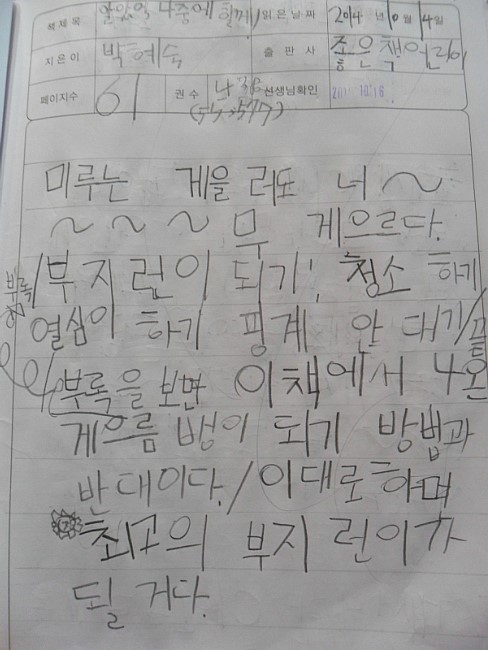 책제목 알았어 나중에 할게! 읽은날짜 2014 년 10 월 14 일
지은이 박혜숙 출판사 좋은책어린이
페이지수 61 권수 선생님확인 201 10.16
미루는 게을러도 너~
~~~무 게으르다.
부지런이 되기! 청소 하기
열심이 하기 핑계 안 대기/
부록을 보면 이책에서 나온
게으름 뱅이 되기 방법과
반대이다./이대로하며
최고의 부지런이가
될 거다.